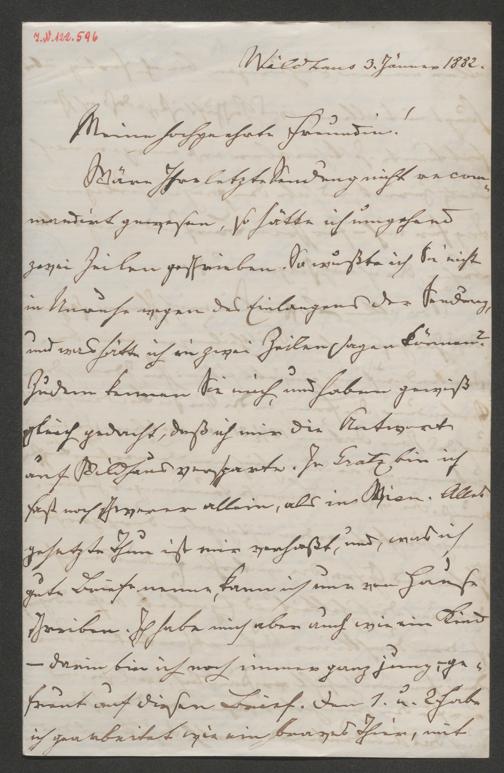 J.N. 122.596
Wildhaus 3. Jänner 1882.
Meine hochgeehrte Freundin!
Wäre Ihre letzte Sendung nicht recom-
mandirt gewesen, so hätte ich umgehend
zwei Zeilen geschrieben. So wußte ich Sie nicht
in Unruhe wegen des Einlangens der Sendung,
und was hätte ich in zwei Zeilen sagen können?
Zudem kennen Sie mich, und haben gewiß
gleich gedacht, daß ich mir die Antwort
auf Wildhaus versparte. In Gratz bin ich
fast noch schwerer allein, als in Wien. Alles
gehetzte Thun ist mir verhaßt, und, was ich
gute Briefe nenne, kann ich nur von Hause
schreiben. Ich habe mich aber auch wie ein Kind
— darin bin ich noch immer ganz jung – ge-
freut auf diesen Brief. Den 1. u. 2. habe
ich gearbeitet wie ein braves Thier, mit